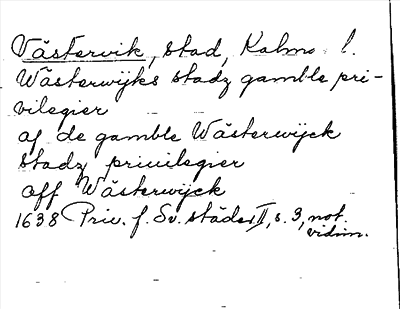 Västervik, stad, Kalma l.
Wästerwijks stadz gamble pri-
vilegier
af de gamble Wästerwijck
stadz priuilegier
off Wästerwijck
1638 Priv. f. Sv. städer II, s. 3, not.
vidim.